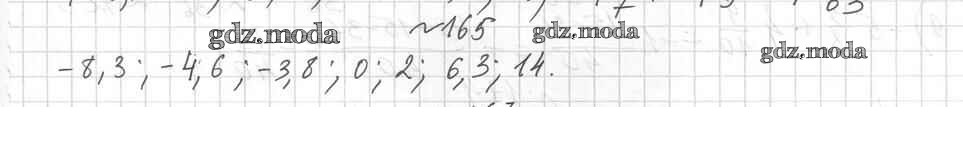 gdz.moda ~165 gdz.moda
gdz.moda
-8,3; -4,6; -3,8; 0; 2; 6,3; 14.